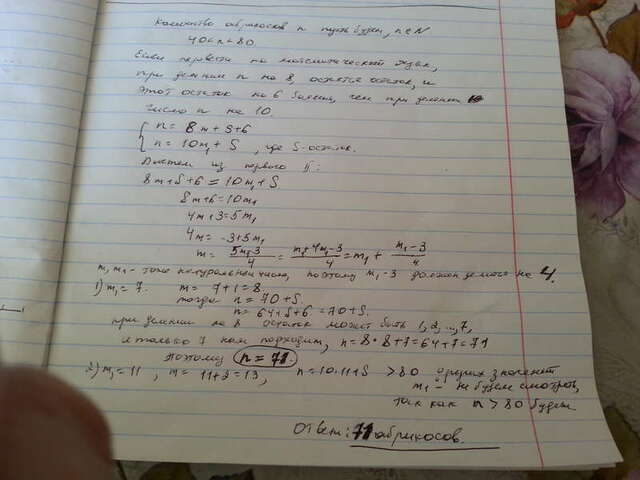 Количество абрикосов n пусть будет, n∈N
40<n<80.
Если перевести на математический язык,
при делении n на 8 остается остаток, и
этот остаток на 6 больше, чем при делении
число n на 10.
{ n = 8m + S+6
n = 10m₁ + S, где S-остаток.
Вычтем из первого II:
8m+S+6 = 10m₁+S
8m+6=10m₁
4m+3=5m₁
4m = -3+5m₁
m = 5m₁-3/4 = m₁+4m₁-3/4 = m₁ + m₁-3/4
m, m₁ - тоже натуральные числа, поэтому m₁-3 должно делится на 4.
1) m₁=7. m = 7+1=8.
тогда n = 70+S.
n = 64+S+6 = 70+S.
при делении на 8 остаток может быть 1,2,...,7,
и только 7 нам подходит, n=8*8+7=64+7=71
Поэтому n=71.
2) m₁=11, m = 11+2=13, n=10·11+S >80 других значений
m₁ - не будем смотреть,
так как n>80 будет.
Ответ: 71 абрикосов.